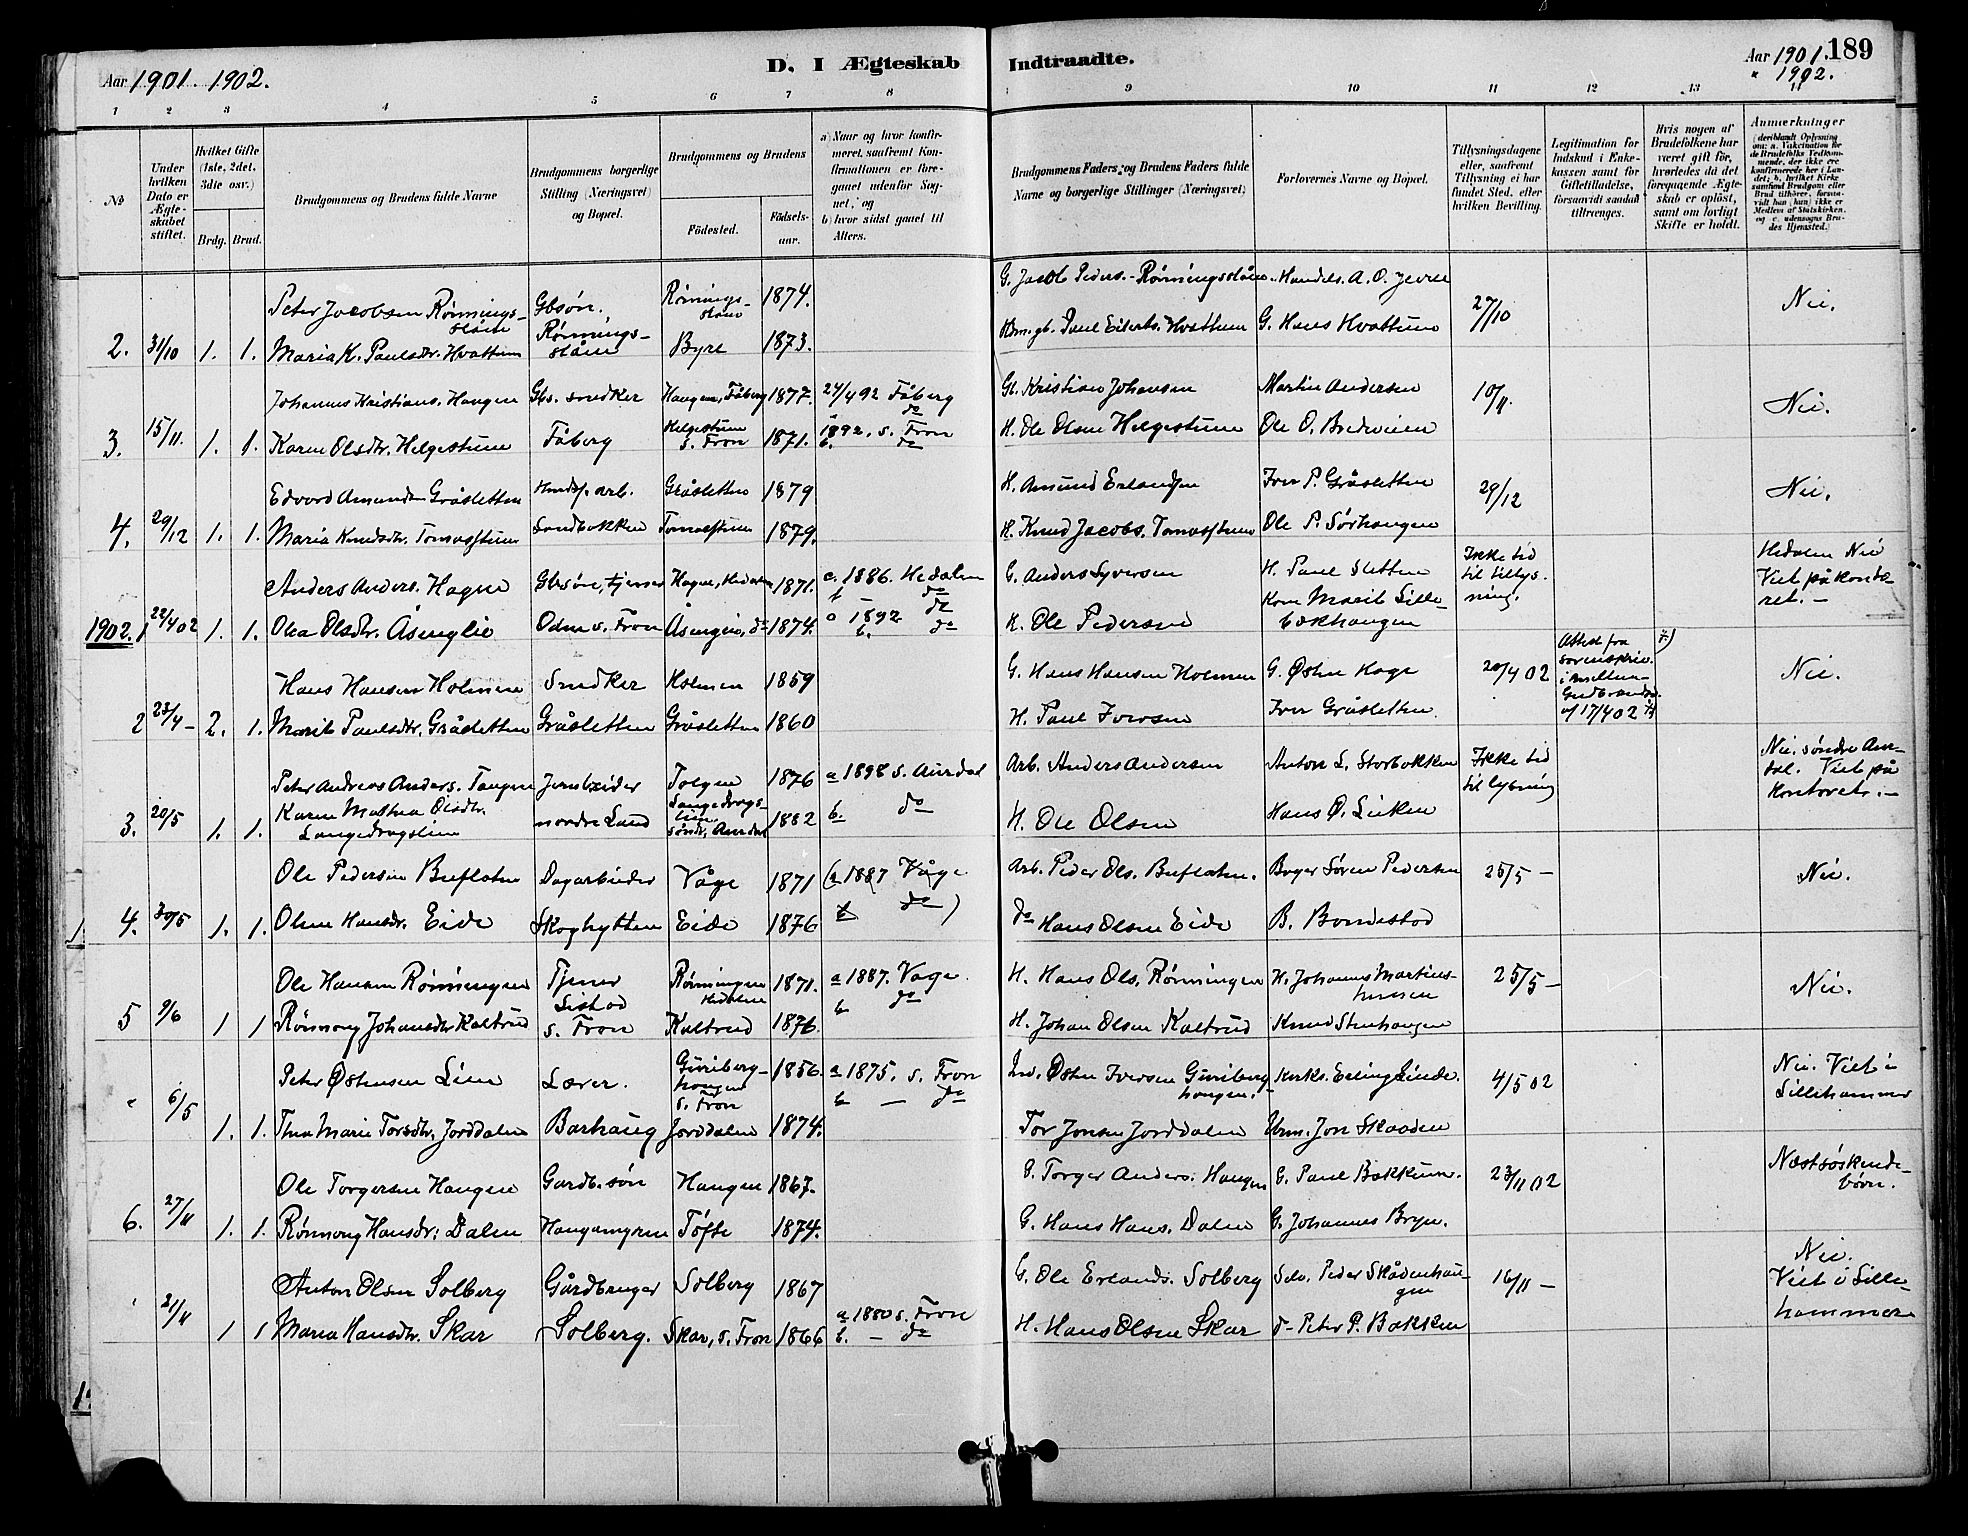 Aar 1901. 1902.
D. I Ægteskab Indtraadte.
Aar 1901. 189
" 1902.
1 2 3 4 5 6 7 8 9 10 11 12 13 11
No
Under hvilken Dato er Ægteskabet stiftet.
Hvilket Gifte (1ste, 2det, 3die osv.)
Brdg. Brud.
Brudgommens og Brudens fulde Navne
Brudgommens borgerlige Stilling (Næringsvei) og Bopæl.
Brudgommens og Brudens
Fødested. Fødselsaar.
a) Naar og hvor konfirmeret, saafremt Konfirmationen er foregaaet udenfor Sognet, og
b) hvor sidst gaaet til Alters.
Brudgommens Faders og Brudens Faders fulde Navne og borgerlige Stillinger (Næringsvei)
Forlovernes Navne og Bopæl.
Tillysningsdagene eller, saafremt Tillysning ei har fundet Sted, efter hvilken Bevilling.
Legitimation for Indskud i Enkekassen samt for Giftetilladelse, forsaavidt saadan tiltrænges.
Hvis nogen af Brudefolkene har været gift før, hvorledes da det foregaaende Ægteskab er opløst, samt om lovligt Skifte er holdt.
Anmærkninger (deriblandt Oplysning om: a. Vaccination for de Brudefolks Vedkommende, der ikke ere konfirmerede her i Landet; b. hvilket Kirkesamfund Brudgom eller Brud tilhører, forsaavidt han (hun) ikke er Medlem af Statskirken, og c. udensogns Brudes Hjemsted.)
Peter Jacobsen Rønningsslåen Gbsøn. Rønningsslåen 1874. G. Jacob Peders. Rønningsslåen Handels. A. O. 27/10 Nei.
2. 31/10 1. 1. Maria K. Paulsdtr. Hvattum Rønningsslåen Byre 1873. Paul Eilerts. Hvattum G. Hans Hvattum
Johannes Kristians. Haugen Gbs. snedker Haugen, Fåberg 1877 24/4 92 Fåberg do Kristian Johansen Martin Andersen 10/11 Nei.
3. 15/11. 1. 1. Karen Olsdtr. Helgestuen Fåberg Helgestuen S. Fron 1871. a 1892. S. Fron b. do H. Ole Olsen Helgestuen Ole O.
Edvard Amundsen Gråsletten arb. Gråsletten 1879 H. Amund Erlandsen Iver P. Gråsletten 29/12 Nei.
4. 29/12 1. 1. Maria Knudsdtr. Tomasstuen Sandbakken Tomasstuen 1879. H. Knud Jacobs. Tomasstuen Ole P. Sørhaugen
Anders Anders. Hagen Gbsøn, tjener Hagen, Hedalen 1871. a. 1886. Hedalen b - do G. Anders Syversen H. Paul Sletten Ikke tid til tillysning. Hedalen Nei Viet på kontoret. -
1902. 1 22/4 02 1. 1. Olea Olsdtr. Åsenglie S. Fron do 1874. a 1892 do b. do K. Ole Pedersen Kone Marit
Hans Hansen Holmen Snedker Holmen 1859 G. Hans Hansen Holmen G. Østen Hage 20/4 02 Attest fra sorenskriv. i 17/4 02 Nei.
2 23/4 - 2. 1. Marit Paulsdtr. Gråsletten Gråsletten Gråsletten 1860 H. Paul Iversen Iver Gråsletten.
Peter Andreas Anders. Tangen Tolgen 1876 a 1898 S. Aurdal Arb. Anders Andersen Anton L. Storbakken Ikke tid til lysning Nei. søndre Aurdal. Viet på kontoret. -
3. 20/5 1. 1. Karen Mathea Olsdtr. Langedragslien nordre Land Langedragslien søndr. Aurdal 1882 b. do H. Ole Olsen Hans Ø. Lieken
Ole Pedersen Bufloten Dagarbeider Våge 1871 (a 1887 Våge Arb. Peder Ols. Bufloten. Bager Søren Pedersen 25/5 - Nei.
4. 30/5 1. 1. Oline Hansdtr. Eide Skoghytten Eide 1876 b do) do Hans Olsen Eide B. Bondestad
Ole Hansen Rønningen Tjener Listad Rønningen Hedalen 1871. a 1887. Vage b do H. Hans Ols. Rønningen H. Johannes Martinshusen 25/5 - Nei.
5 9/6 1 1 Rønnoug Johansdtr Kaltrud S. Fron Kaltrud 1876. H. Johan Olsen Kaltrud Knud Stenhaugen
Peter Østensen Lien Lærer. Guriberghaugen S. Fron 1856. a 1875. S. Fron b - do Østen Iversen Guriberghaugen. Kirkes. Erling Linde. 4/5 02 Nei. Viet i Lillehammer
" 6/5 1. 1. Thea Marie Torsdtr. Jorddalen Barhaug Jorddalen 1874. Tor Jonsen Jorddalen Jon Skaaden
Ole Torgersen Haugen Gardb.søn Haugen 1867. G. Torger Anders. Haugen G. Paul Bakkum. 23/11 02 Næstsøskendebørn.
6. 27/11 1. 1. Rønnoug Hansdtr. Dalen Haugamyren Tofte 1874. G. Hans Hans. Dalen G. Johannes Bryn.
Anton Olsen Solberg Gårdbruger Solberg 1867 G. Ole Erlands. Solberg Selv. Peder Skådenhaugen 16/11 - Nei. Viet i Lillehammer
" 21/11 1 1 Maria Hansdtr. Skar Solberg. Skar, S. Fron 1866 a 1880 S. Fron b. - do H. Hans Olsen Skar do Peter P. Bakken